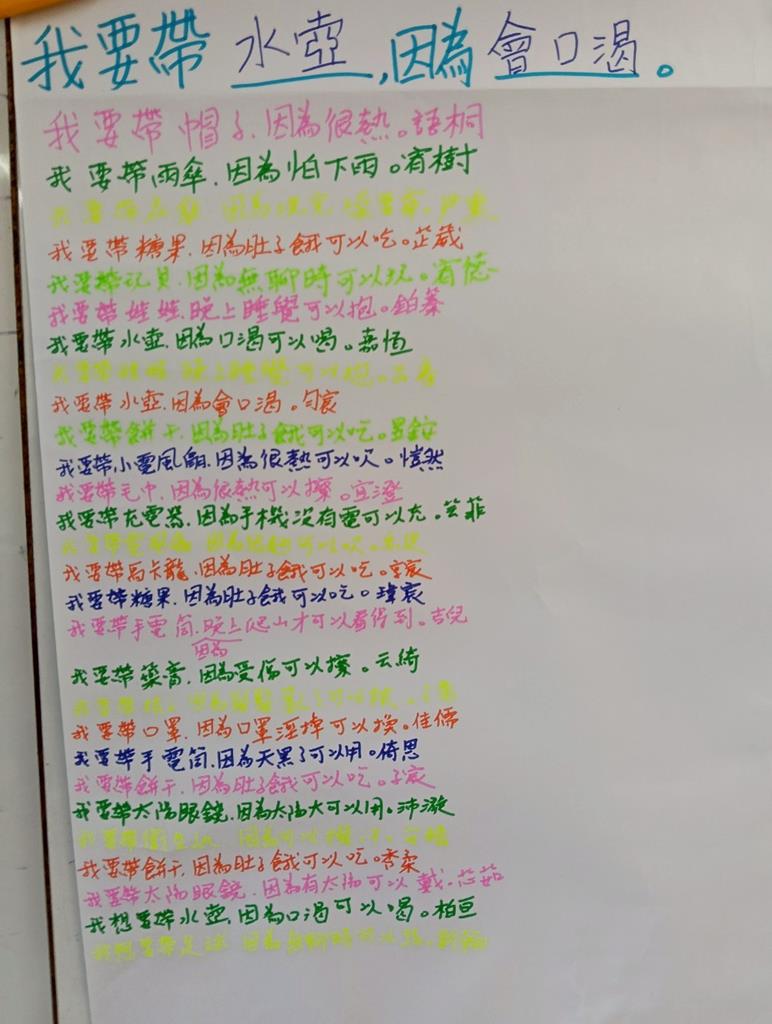 我要帶 水壺,因為 會口渴。
我要帶帽子.因為很熱。語桐
我要帶雨傘.因為怕下雨。宥樹
我要帶 因為
我要帶糖果.因為肚子餓可以吃。芷葳
我要帶玩具.因為無聊時可以玩。宥德
我要帶娃娃.晚上睡覺可以抱。鉑蓁
我要帶水壺.因為口渴可以喝。嘉恒
我要帶 晚上睡覺可以抱。
我要帶水壺.因為會口渴。勻宸
我要帶餅干.因為肚子餓可以吃。
我要帶小電風扇.因為很熱可以吹。愷然
我要帶毛巾.因為很熱可以擦。宜澄
我要帶充電器.因為手機沒有電可以充。芸菲
我要帶電風扇 因為 可以吹。
我要帶馬卡龍.因為肚子餓可以吃。宇宸
我要帶糖果.因為肚子餓可以吃。瑋宸
我要帶手電筒.晚上爬山才可以看得到。吉兒
因為
我要帶藥膏.因為受傷可以擦。云綺
我要帶 因為 可以
我要帶口罩.因為口罩溼掉可以換。佳儒
我要帶手電筒.因為天黑了可以用。倚思
我要帶餅干.因為肚子餓我可以吃。子宸
我要帶太陽眼鏡.因為太陽大可以用。沛漩
我要帶衛生紙 因為可以擦汗。
我要帶餅干.因為肚子餓可以吃。秀柔
我要帶太陽眼鏡.因為有太陽可以戴。芯茹
我想要帶水壺.因為口渴可以喝。柏亘
我想要帶足球 因為無聊時可以